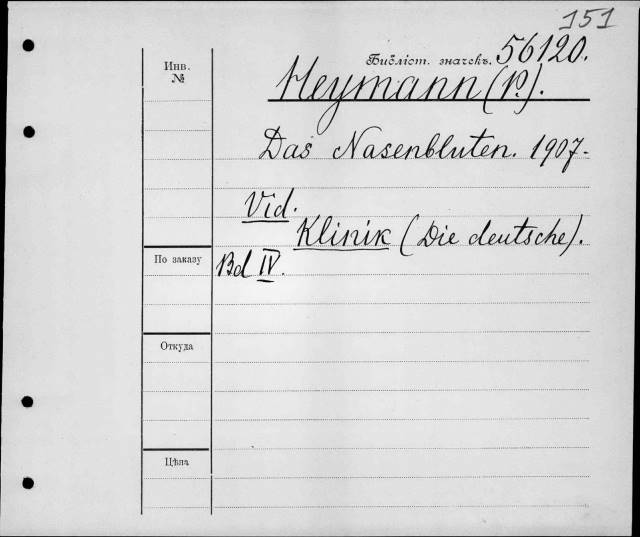 151
Инв. №
Библіот. значекъ. 56120.
Heymann (P.).
Das Nasenbluten. 1907-
Vid.
Klinik (Die deutsche).
По заказу
Bd IV.
Откуда
Цѣна